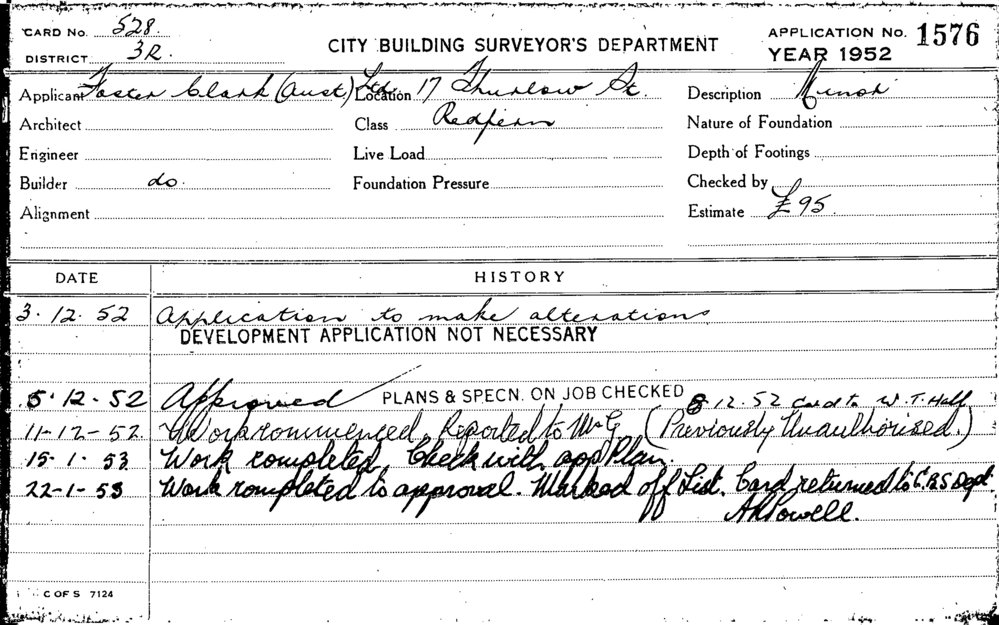 CARD No. 528.
CITY BUILDING SURVEYOR'S DEPARTMENT
APPLICATION No. 1576
DISTRICT 3R.
YEAR 1952
Applicant Foster Clark (Aust) Ltd Location 17 Thurlow St. Description Minor
Architect Class Redfern Nature of Foundation
Engineer Live Load Depth of Footings
Builder do. Foundation Pressure Checked by
Alignment Estimate £95
DATE HISTORY
3.12.52 Application to make alterations
DEVELOPMENT APPLICATION NOT NECESSARY
5.12.52 Approved PLANS & SPECN. ON JOB CHECKED 8.12.52 Card to W.T. Hall
11-12-52. Work commenced. Reported to Mr G (Previously Unauthorised.)
15.1.53 Work completed. Check with app Plan.
22-1-53 Work completed to approval. Marked off List. Card returned to C.B.S Dept.
A R Powell.
C OF S 7124